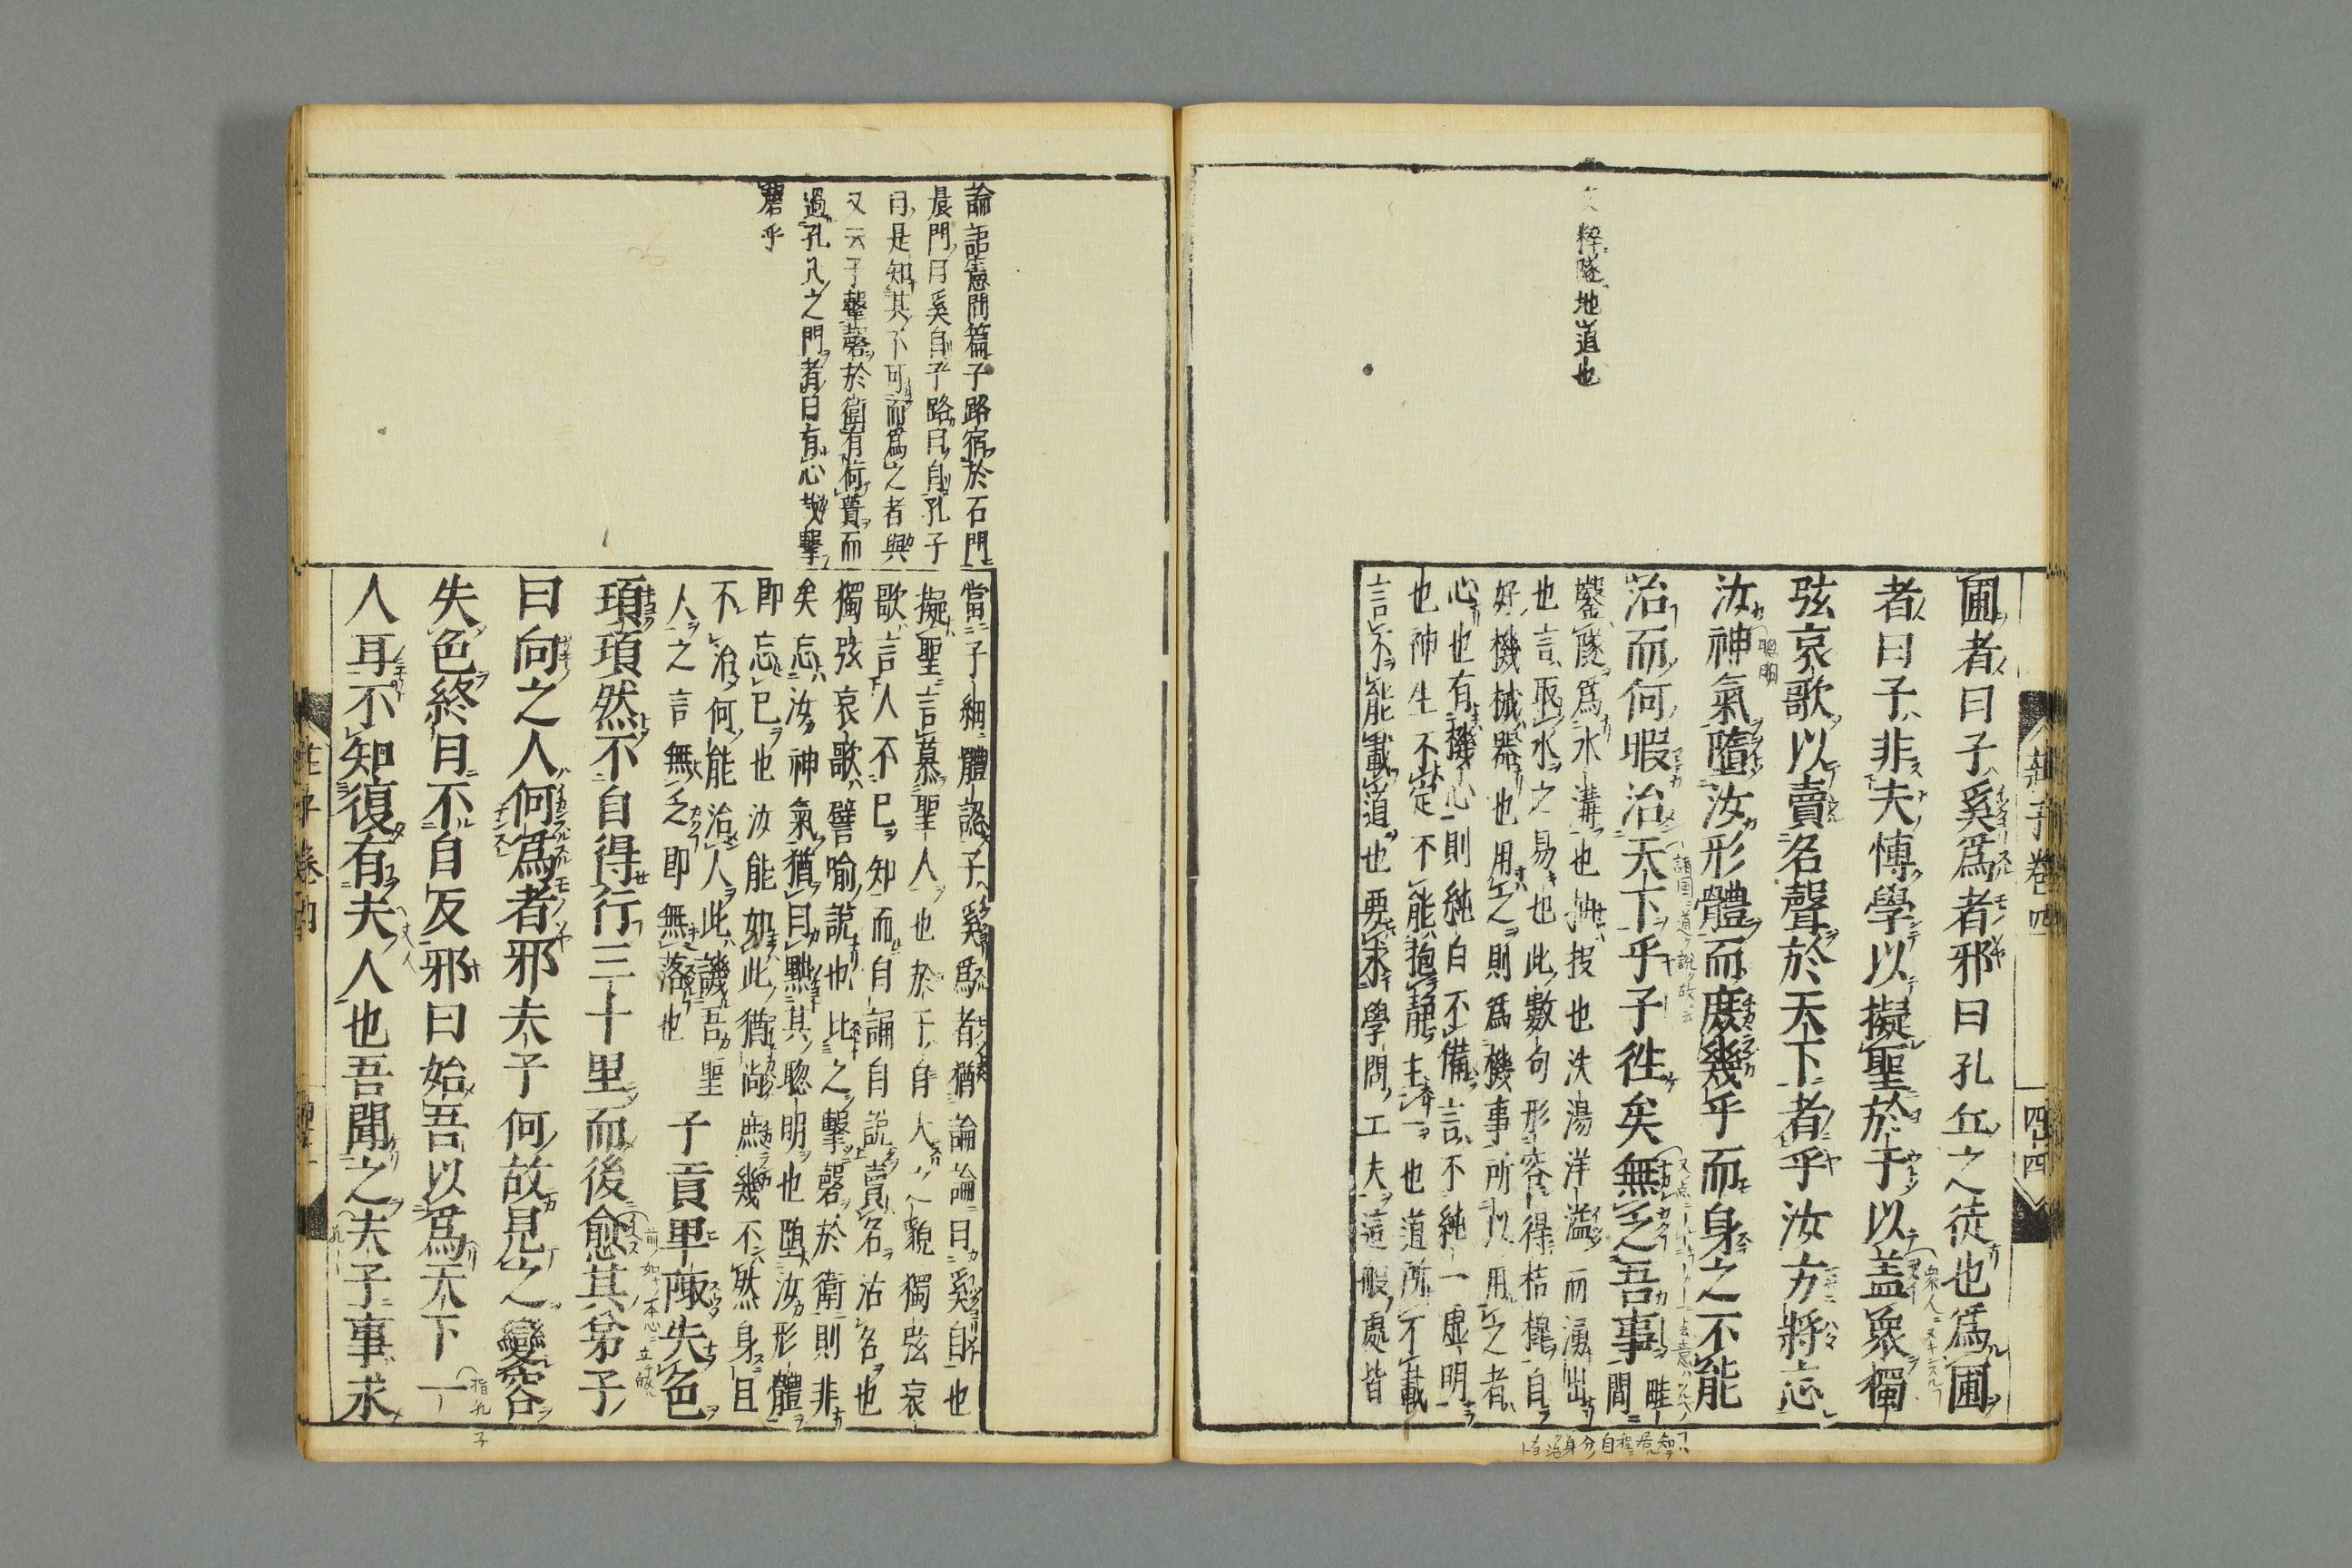 粹隧地道也
圃者曰子奚爲者邪曰孔丘之徒也爲圃
者曰子非夫博學以擬聖於于以盖衆獨
弦哀歌以賣名聲於天下者乎汝方將忘
汝神氣墮汝形體而庶幾乎而身之不能
治而何暇治天下乎子徃矣無乏吾事
鑿隧爲水溝也抽拔也泆湯洋溢而湧出
也言取水之易也此數句形容得桔槹自
好機械器也用之則爲機事所以用之者
心也有機心則純白不備言不純一虛明
也神生不定不能抱靜主一也道所不載
言不能載道也要求學問工夫這般處皆
莊子卷四
四十四
論語憲問篇子路宿於石門
晨門曰奚自子路曰自孔子
曰是知其不可而爲之者與
又云子擊磬於衛有荷蕢而
過孔氏之門者曰有心哉擊
磬乎
當子細體認子奚爲者猶論論曰奚自也
擬聖言慕聖人也於于自大之貌獨弦哀
歌言人不已知而自誦自說賣名沽名也
獨弦哀歌譬喻說也比之擊磬於衛則非
矣忘汝神氣猶曰黜其聰明也墮汝形體
即忘己也汝能如此猶尚庶幾不然身且
不治何能治人此譏吾聖
人之言無乏即無落也
子貢卑陬失色
頊頊然不自得行三十里而後愈其弟子
曰向之人何爲者邪夫子何故見之變容
失色終日不自反邪曰始吾以爲天下一
人耳不知復有夫人也吾聞之夫子事求
莊子卷四